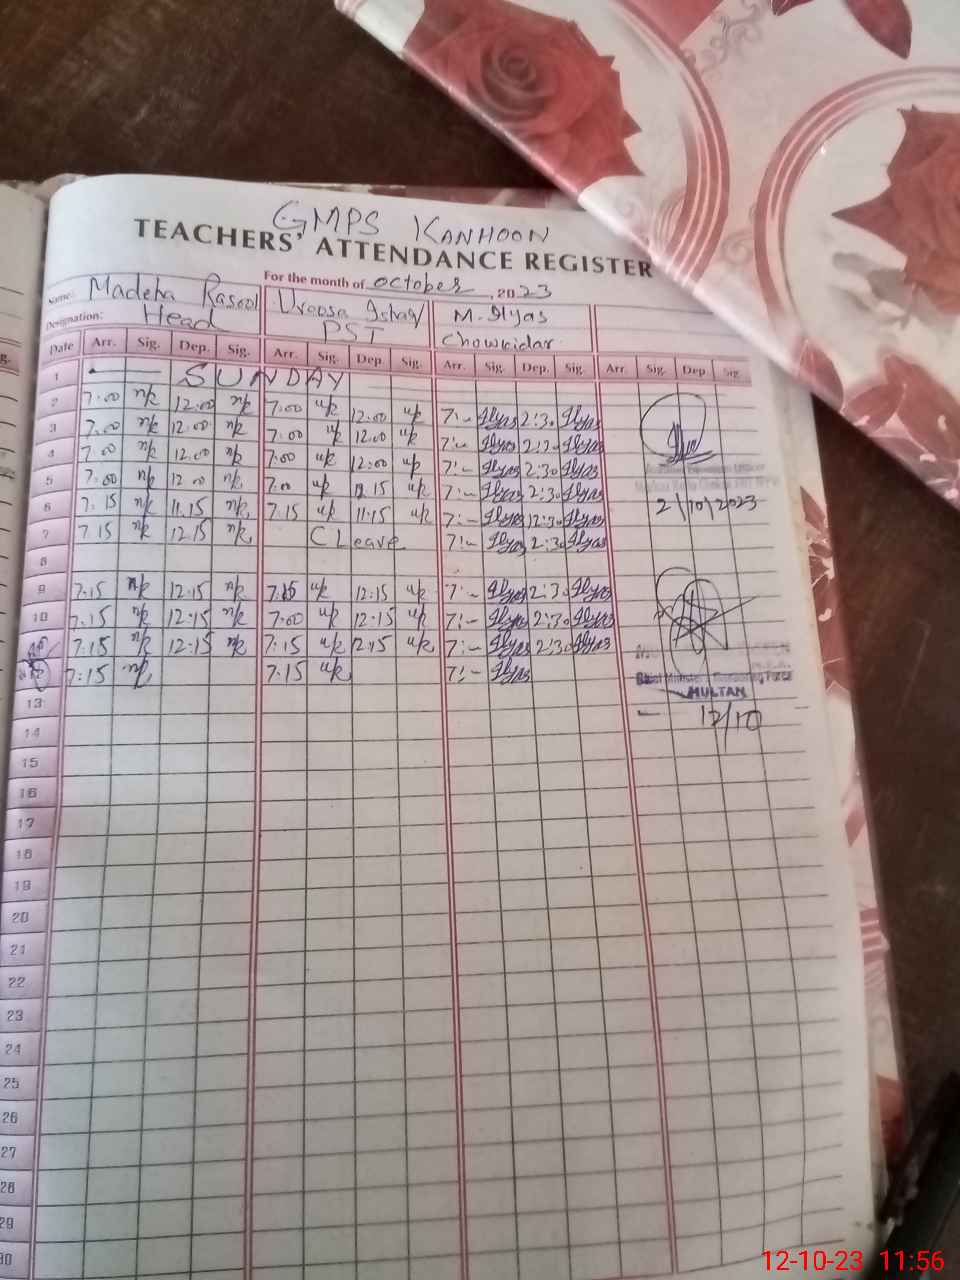 GMPS KANHOON
TEACHERS' ATTENDANCE REGISTER
For the month of October, 2023
Name: Madeha Rasool Uroosa Ishaq M. Ilyas
Designation: Head PST Chowkidar
Date Arr. Sig. Dep. Sig. Arr. Sig. Dep. Sig. Arr. Sig. Dep. Sig. Arr. Sig. Dep. Sig.
1 SUNDAY
2 7:00 12:00 7:00 12:00 7:- Ilyas 2:30 Ilyas
3 7:00 12:00 7:00 12:00 7:- Ilyas 2:30 Ilyas
4 7:00 12:00 7:00 12:00 7:- Ilyas 2:30 Ilyas
5 7:00 12:00 7:00 12.15 7:- Ilyas 2:30 Ilyas
2/10/2023
6 7:15 11.15 7.15 11:15 7:- Ilyas 12:30 Ilyas
7 7.15 12.15 C Leave 7:- Ilyas 2:30 Ilyas
8
9 7:15 12:15 7:15 12:15 7:- Ilyas 2:30 Ilyas
10 7:15 12:15 7:00 12:15 7:- Ilyas 2:30 Ilyas
7:15 12:15 7:15 12:15 7:- Ilyas 2:30 Ilyas
12 7:15 7.15 7:- Ilyas
Chief Minister's Monitoring Force
MULTAN
12/10
13
14
15
16
17
18
19
20
21
22
23
24
25
26
27
28
29
30
12-10-23 11:56